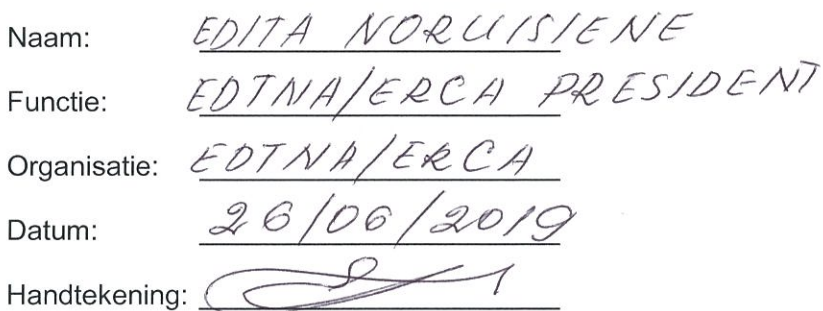 Naam: EDITA NORUISIENE
Functie: EDTNA/ERCA PRESIDENT
Organisatie: EDTNA/ERCA
Datum: 26/06/2019
Handtekening: